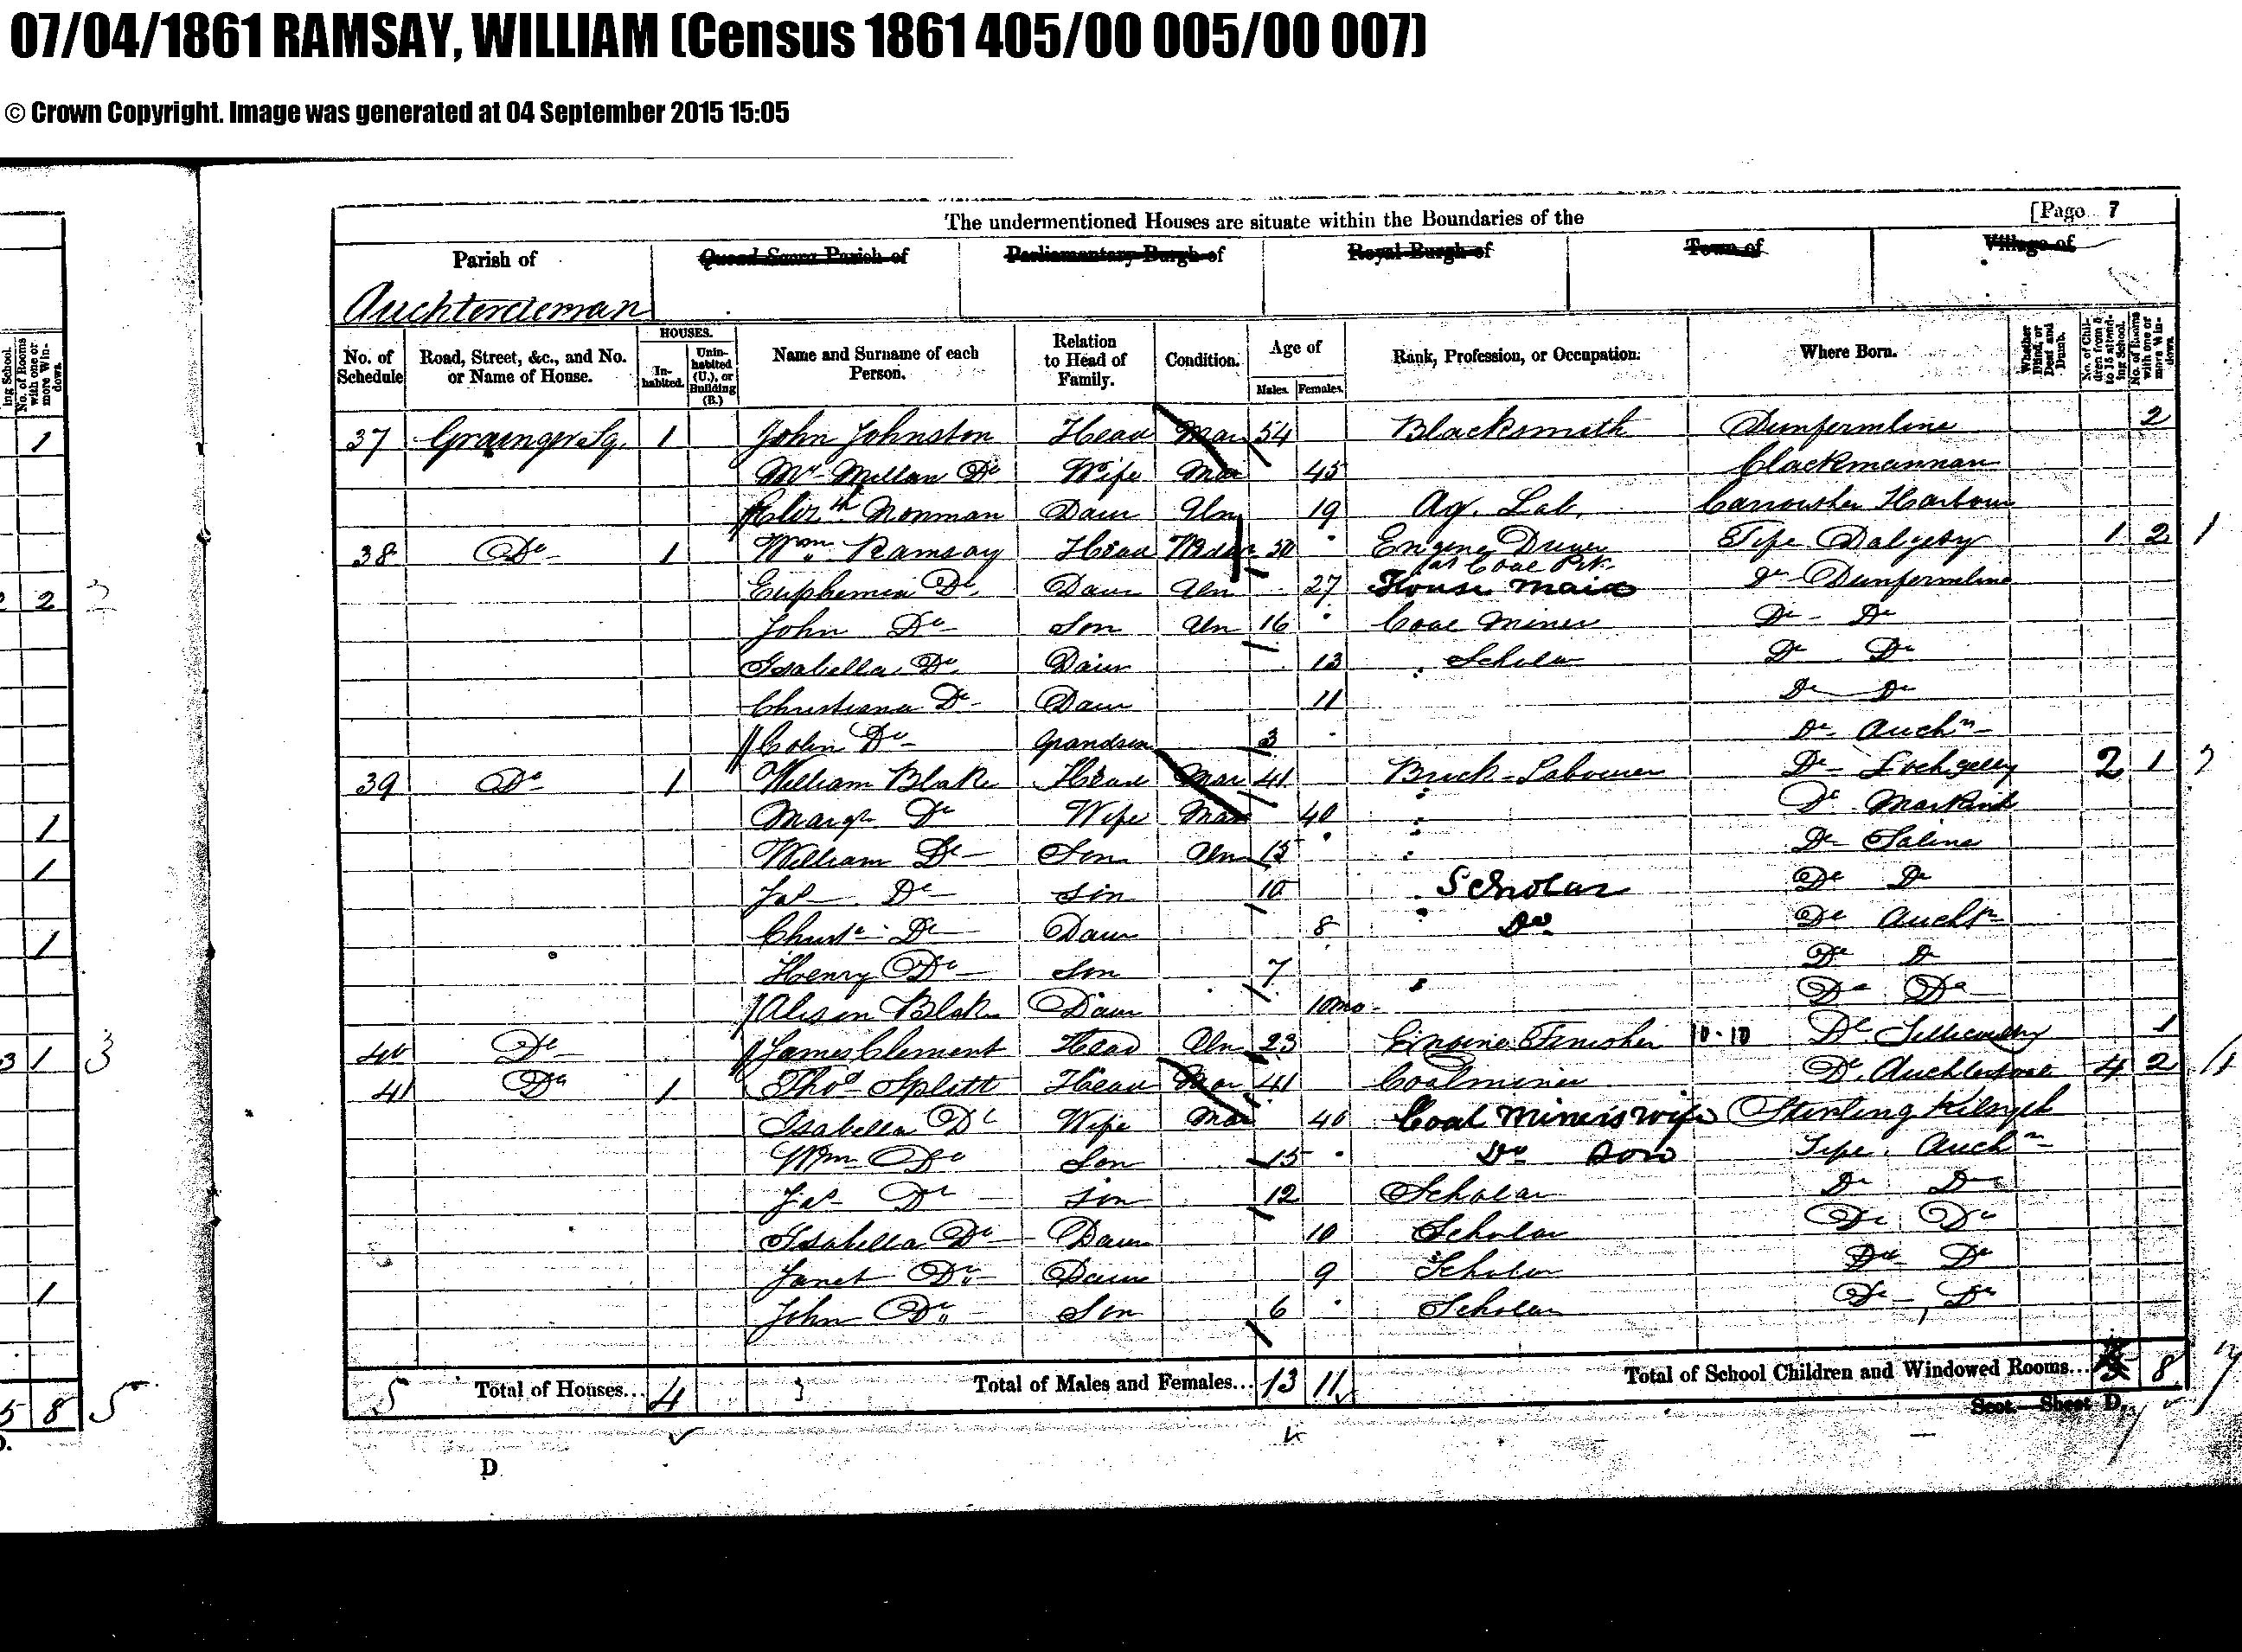 07/04/1861 RAMSAY, WILLIAM (Census 1861 405/00 005/00 007)
© Crown Copyright. Image was generated at 04 September 2015 15:05
The undermentioned Houses are situate within the Boundaries of the [Page 7
Parish of Quoad Sacra Parish of Parliamentary Burgh of Royal Burgh of Town of Village of
Auchterderran
No. of Schedule Road, Street, &c., and No. or Name of House. HOUSES. Inhabited. Uninhabited (U.), or Building (B.) Name and Surname of each Person. Relation to Head of Family. Condition. Age of Males. Females. Rank, Profession, or Occupation. Where Born. Whether Blind, or Deaf and Dumb. No. of Children from 5 to 15 attending School. No. of Rooms with one or more Windows.
37 Grainger Sq. 1 John Johnston Head Mar 54 Blacksmith Dunfermline 2
Millan Do Wife Mar 45 Clackmannan
Elizth Norman Daur Un 19 Ag. Lab. Harbour
38 Do 1 Wm Ramsay Head 50 Engine Driver Fife Dalgety 1 2 1
at Coal Pit
Euphemia Do Daur Un 27 House Maid Do Dunfermline
John Do Son Un 16 Coal Miner Do Do
Isabella Do Daur 13 Scholar Do Do
Christiana Do Daur 11 Do Do
Colin Do Grandson 3 Do Auchn
39 Do 1 William Blake Head Mar 41 Brick-Labourer Do Lochgelly 2 1
Margt Do Wife Mar 40 Do Markinch
William Do Son Un 15 Do Saline
Jas Do Son 10 Scholar Do Do
Do Daur 8 Do Do
Henry Do Son 7 Do Do
Alison Blake Daur 10mo Do Do
40 Do James Clement Head Un 23 Engine Finisher 10-10 Do 1
41 Do 1 Thos Splatt Head Mar 41 Coalminer Do 4 2
Isabella Do Wife Mar 40 Coal Miners wife Stirling Kilsyth
Wm Do Son 15 Do Son Fife Auchn
Jas Do Son 12 Scholar Do Do
Isabella Do Daur 10 Scholar Do Do
Janet Do Daur 9 Scholar Do Do
John Do Son 6 Scholar Do Do
5 Total of Houses... 4 Total of Males and Females... 13 11 Total of School Children and Windowed Rooms... 8 7
Scot.—Sheet D.
D